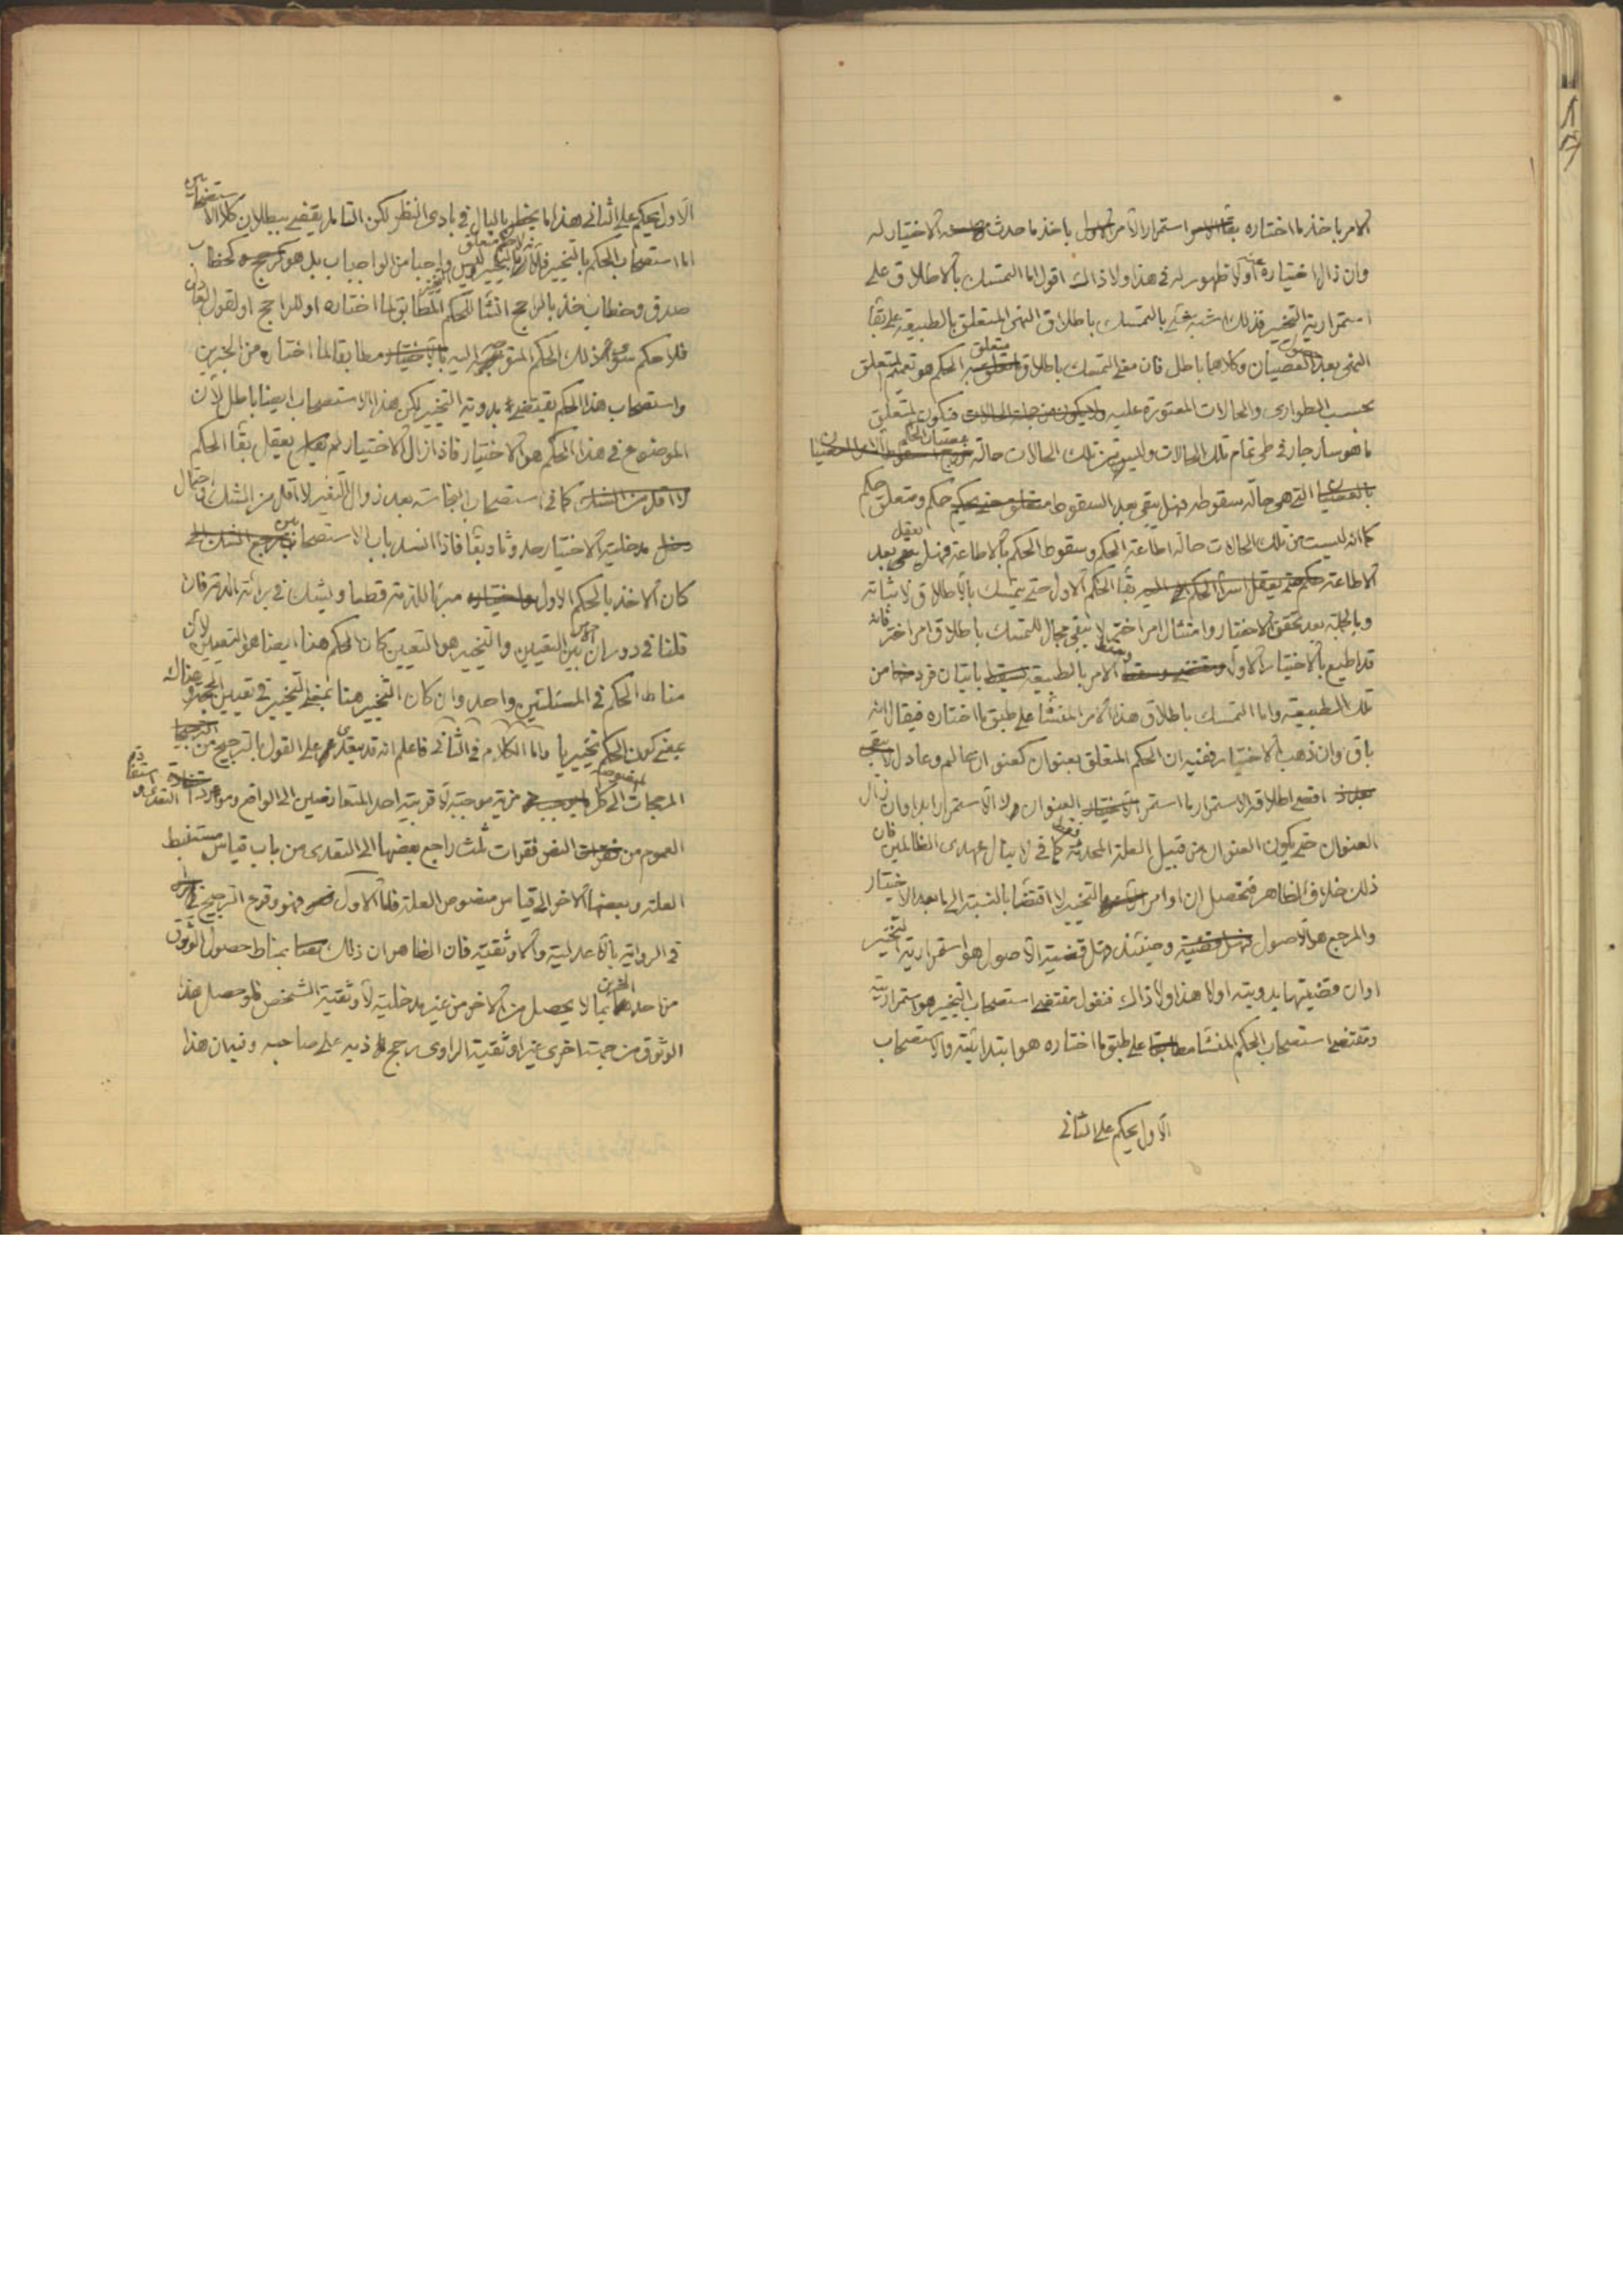 الامر باخذ ما اختاره استمرار الامر باخذ ما حدث الاختيار له
وان زال اختياره اولا ظهور له فى هذا ولا ذاك اقول اما التمسك بالاطلاق على
استمرارية التخيير فذلك اشبه شىء بالتمسك باطلاق النهى المتعلق بالطبيعة على بقاء
النهى بعد العصيان وكلاهما باطل فان معنى التمسك باطلاق متعلق الحكم هو تعميم المتعلق
بحسب الطوارى والحالات المعتورة عليه فيكون المتعلق
ما هو سار جار فى طى تمام تلك الحالات وليس من تلك الحالات حالة عصيان الحكم
التى هى حالة سقوطه فهل يبقى بعد السقوط حكم ومتعلق حكم
كما انه ليست من تلك الحالات حالة اطاعة الحكم وسقوط الحكم بالاطاعة فهل يعقل بعد
الاطاعة بقاء الحكم الاول حتى يتمسك بالاطلاق لاثباته
وبالجملة بعد تحقق الاختيار وامتثال امر اختر لا يبقى مجال للتمسك باطلاق امر اختر فانه
قد اطيع بالاختيار الاول الامر بالطبيعة باتيان فرد من
تلك الطبيعة واما التمسك باطلاق هذا الامر المنشأ على طبق ما اختاره فيقال انه
باق وان ذهب الاختيار ففيه ان الحكم المتعلق بعنوان كعنوان عالم وعادل
اقصى اطلاقه الاستمرار ما استمر العنوان لا الاستمرار ابدا وان زال
العنوان حتى يكون العنوان من قبيل العلة المحدثة كما فى لا ينال عهدى الظالمين فان
ذلك خلاف الظاهر فتحصل ان اوامر التخيير لا اقتضاء بالنسبة الى ما بعد الاختيار
والمرجع هو الاصول وحينئذ فهل قضية الاصول هو استمرارية التخيير
او ان قضيتها بدويته اولا هذا ولا ذاك فنقول مقتضى استصحاب التخيير هو استمراريته
ومقتضى استصحاب الحكم المنشأ على طبق ما اختاره هو ابتدائيته والاستصحاب
الاول يحكم على الثانى
الاول يحكم على الثانى هذا ما يخطر بالبال فى بادى النظر لكن التامل يقضى ببطلان كلا الاستصحابين
اما استصحاب الحكم بالتخيير فلان التخيير ليس واجبا من الواجبات بل هو كخطاب
صدق وخطاب خذ بالراجح انشاء للحكم المطابق لما اختاره او للراجح او لقول العادل
فلا حكم سوى ذلك الحكم المتوجه اليه مطابقا لما اختاره من الخبرين
واستصحاب هذا الحكم يقتضى بدوية التخيير لكن هذا الاستصحاب ايضا باطل لان
الموضوع فى هذا الحكم هو الاختيار فاذا زال الاختيار لم يعقل بقاء الحكم
كما فى استصحاب النجاسة بعد زوال التغير لا اقل من الشك
مدخلية الاختيار حدوثا وبقاء فاذا انسد باب الاستصحابين
كان الاخذ بالحكم الاول مبرئا للذمة قطعا ويشك فى برائة الذمة فان
قلنا فى دوران الامر بين التعيين والتخيير هو التعيين كان الحكم هنا ايضا هو التعيين لان
مناط الحكم فى المسئلتين واحد وان كان التخيير هنا بمعنى التخيير فى تعيين الحجة وهناك
بمعنى كون الحكم تخييريا واما الكلام فى الثانى فاعلم انه قد يتعدى على القول بالترجيح من
المرجحات المنصوصة الى كل مزية موجبة لاقربية احد المتعارضين الى الواقع
العموم من النص فقرات ثلث راجع بعضها الى التعدى من باب قياس مستنبط
العلة وبعضها الاخر الى قياس منصوص العلة فاما الاول فهو وقوع الترجيح
فى الرواية بالاعدلية والاوثقية فان الظاهر ان ذلك بمناط حصول الوثوق
من احد الخبرين بما لا يحصل من الاخر من غير مدخلية لاوثقية الشخص فلو حصل هذا
الوثوق من جهة اخرى غير اوثقية الراوى رجح ذيه على صاحبه وفيه ان هذا